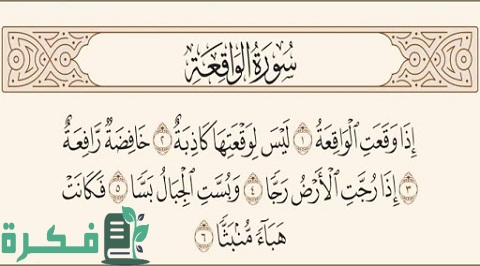 سُورَةُ الْوَاقِعَةِ
إِذَا وَقَعَتِ ٱلْوَاقِعَةُ ١ لَيْسَ لِوَقْعَتِهَا كَاذِبَةٌ ٢ خَافِضَةٌ رَّافِعَةٌ
٣ إِذَا رُجَّتِ ٱلْأَرْضُ رَجًّا ٤ وَبُسَّتِ ٱلْجِبَالُ بَسًّا ٥ فَكَانَتْ
هَبَآءً مُّنۢبَثًّا ٦
فكرة